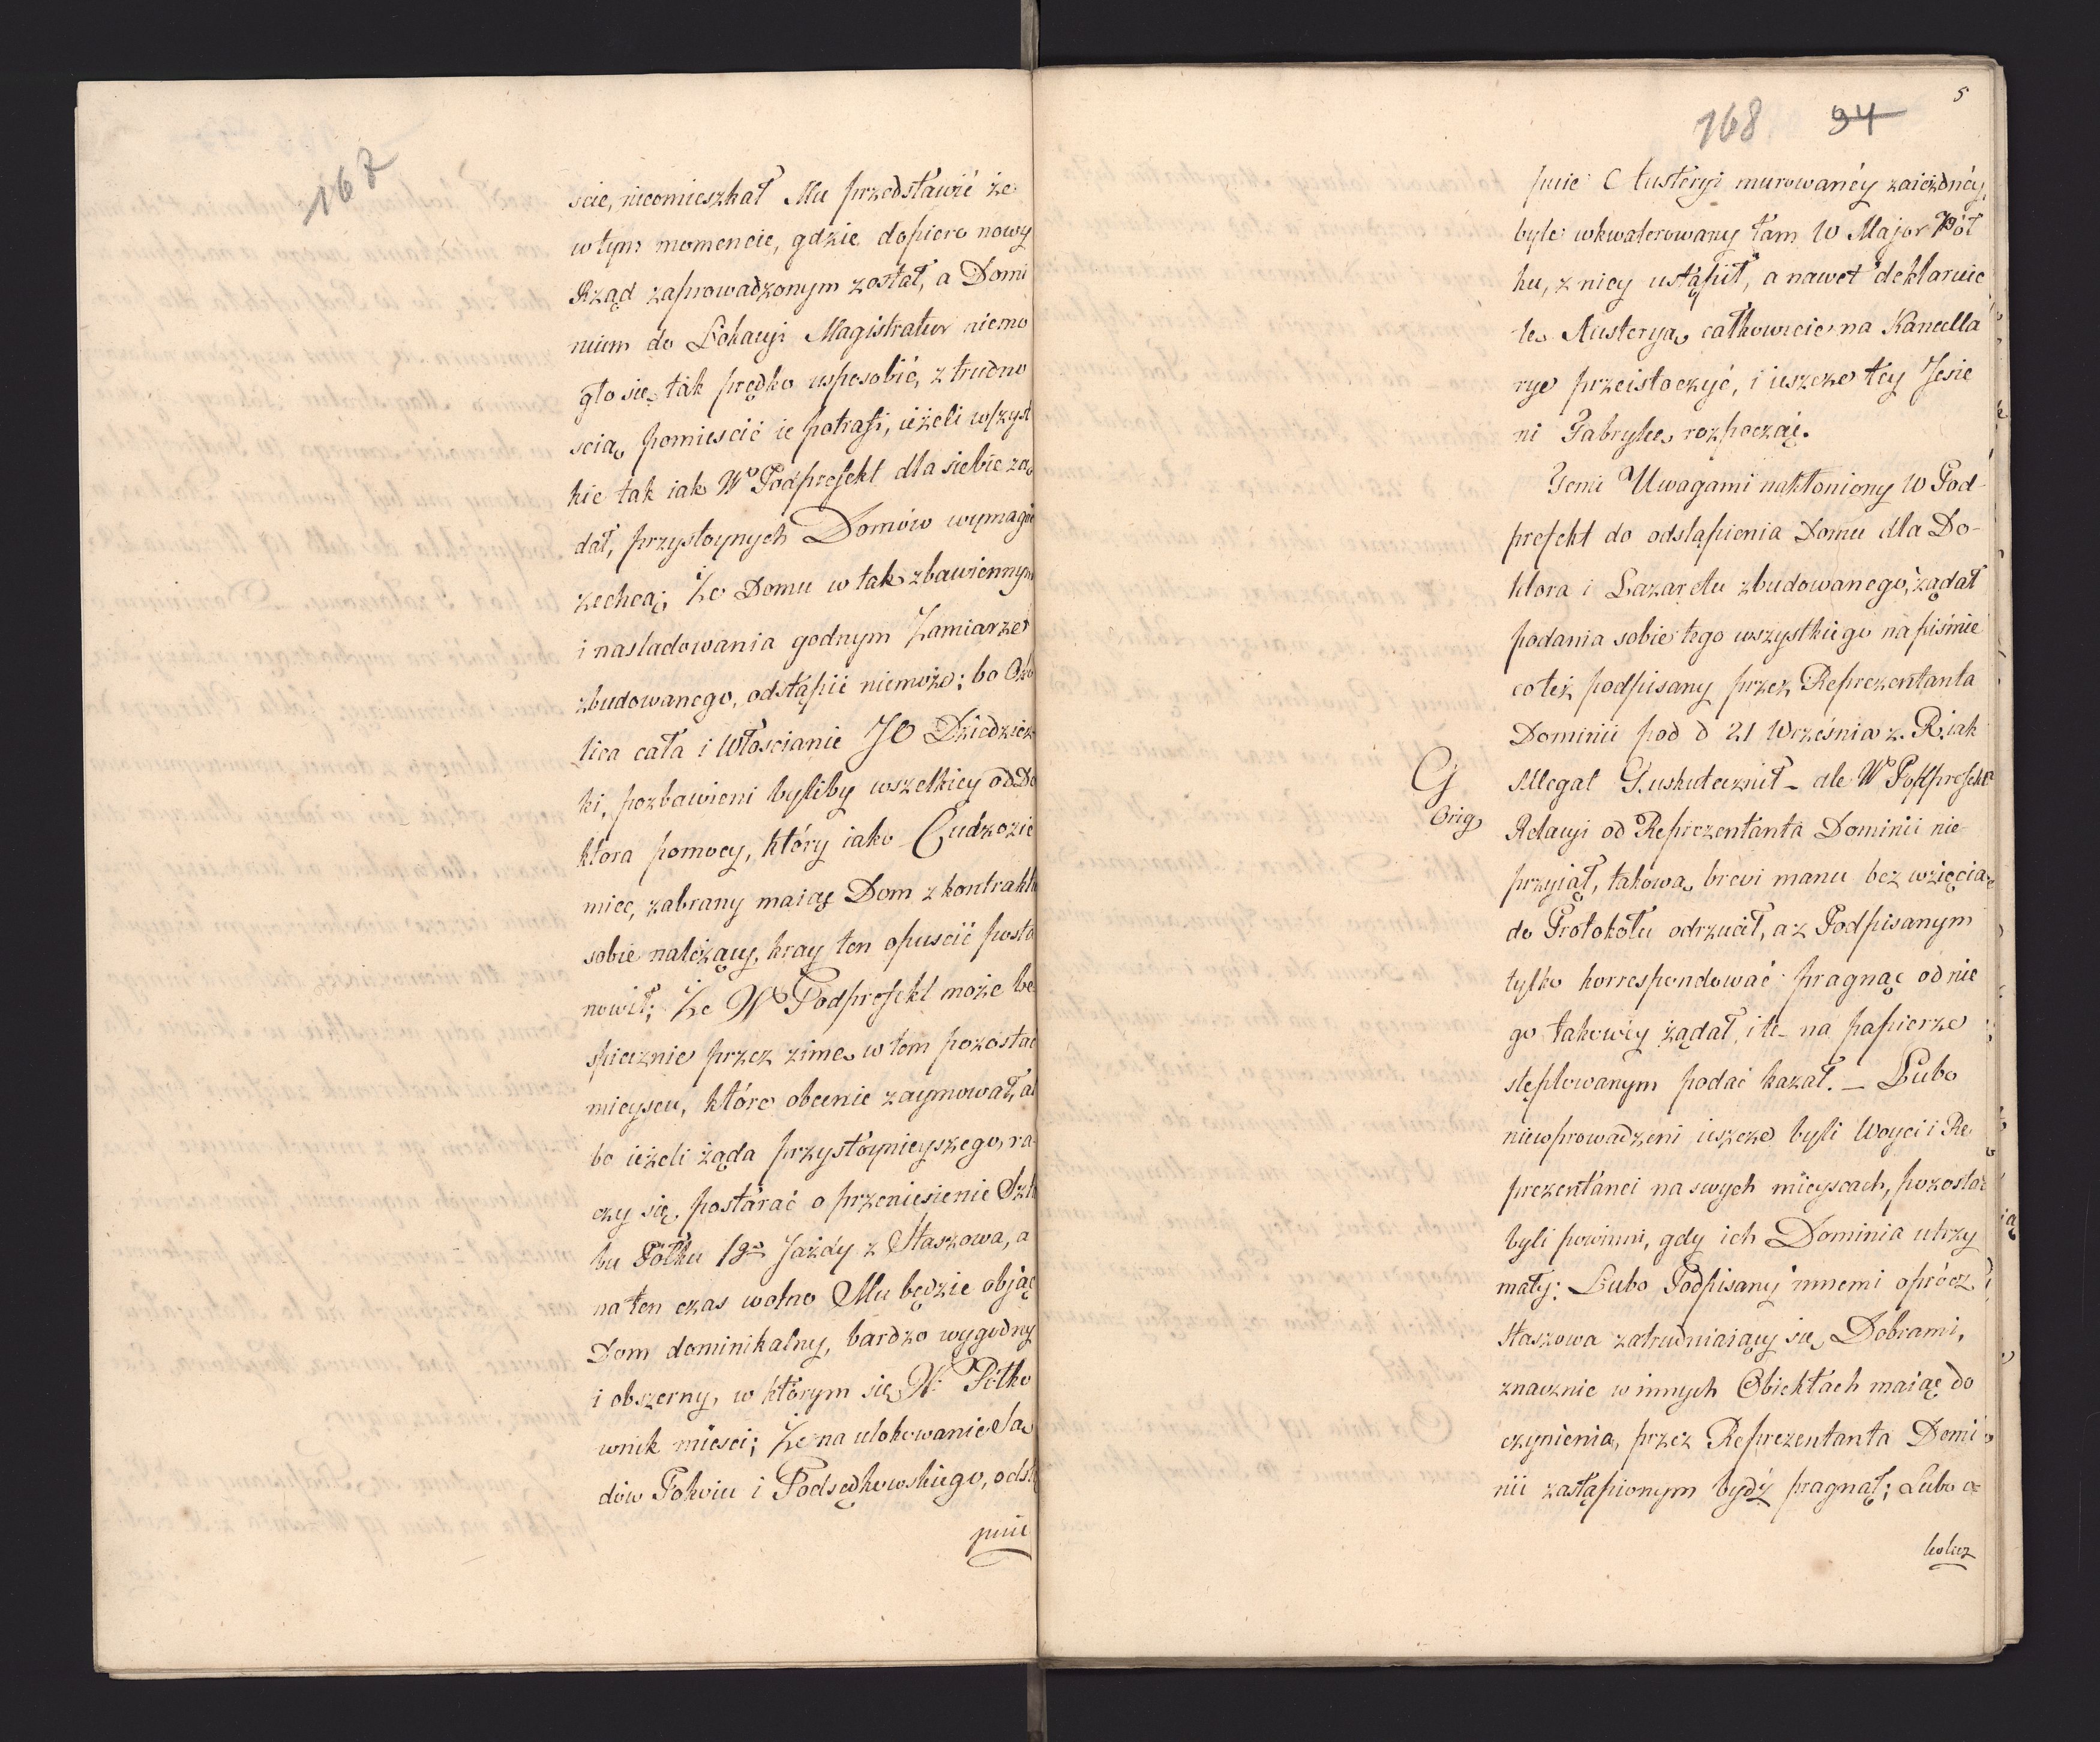 167
scie, nieomieszkał Mu przedstawić że
w tym momencie, gdzie dopiero nowy
Rząd zaprowadzonym został, a Domi
nium do Lokacyi Magistratur niemo
gło się tak prędko usposobić, z trudno
scią pomiescić ie potrafi, ieżeli wszyst
kie tak iak Wo Podprefekt dla siebie żą
dał, przystoynych Domów wymagać
zechcą; Że Domu w tak zbawiennym
i nasladowania godnym Zamiarze
zbudowanego, odstąpić niemoże; bo Oko
lica cała i Włoscianie JO Dziedzicz
ki, pozbawieni byliby wszelkiey od Do
ktora pomocy, który iako Cudzozie
miec, zabrany maiąc Dom z kontraktu
sobie należący, kray ten opuscić posta
nowił; Że W Podprefekt może be
spiecznie przez zimę w tem pozostać
mieyscu, które obecnie zaymował, al
bo ieżeli żąda przystoynieyszego, ra
czy się postarać o przeniesienie Szta
bu Półku 12go Jazdy z Staszowa, a
na ten czas wolno Mu będzie objąć
Dom dominikalny, bardzo wygodny
i obszerny, w którym się W. Półko
wnik miesci; Że na ulokowanie Są
dów Pokoiu i Podsędkowskiego, odstę
puie
5
168 94
puie Austeryi murowanéy zaiezdnéy,
byle wkwaterowany tam W Major Pół
ku, z niey ustąpił, a nawet deklaruie
tę Austeryą całkowicie na Kancella
rye przeistoczyć, i ieszcze tey Jesie
ni Fabrykę rozpocząć.
Temi Uwagami nakłoniony W Pod-
prefekt do odstąpienia Domu dla Do-
ktora i Lazaretu zbudowanego, żądał
podania sobie tego wszystkiego na piśmie
co też podpisany przez Reprezentanta
Dominii pod d 21 Września z. R. iak
G Allegat G. uskutecznił _ ale Wo Podprefekt
Orig Relacyi od Reprezentanta Dominii nie
przyiął, takową brevi manu bez wzięcia
do Protokołu odrzucił, a z Podpisanym
tylko korrespondować pragnąc od nie
go takowéy żądał, i tę na papierze
stęplowanym podać kazał. _ Lubo
niewprowadzeni ieszcze byli Woyci i Re
prezentanci na swych mieyscach, pozostać
byli powinni, gdy ich Dominia utrzy
mały; Lubo Podpisany innemi oprócz
Staszowa zatrudniaiący się Dobrami,
znacznie w innych Obiektach maiąc do
czynienia, przez Reprezentanta Domi
nii zastąpionym bydź pragnął; Lubo o
kolicz